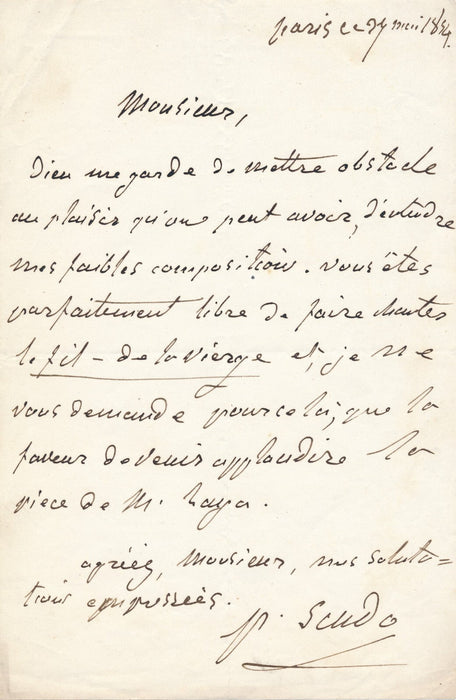 paris ce 27 mai 1854.
Monsieur,
Dieu me garde de mettre obstacle
au plaisir qu'on peut avoir, d'entendre
mes faibles compositions. vous êtes
parfaitement libre de faire chanter
le fil-de la vierge et, je ne
vous demande pour cela, que la
faveur de venir applaudire la
piece de M. Laya.
agréez, Monsieur, mes saluta=
tions empressées.
p. Scudo